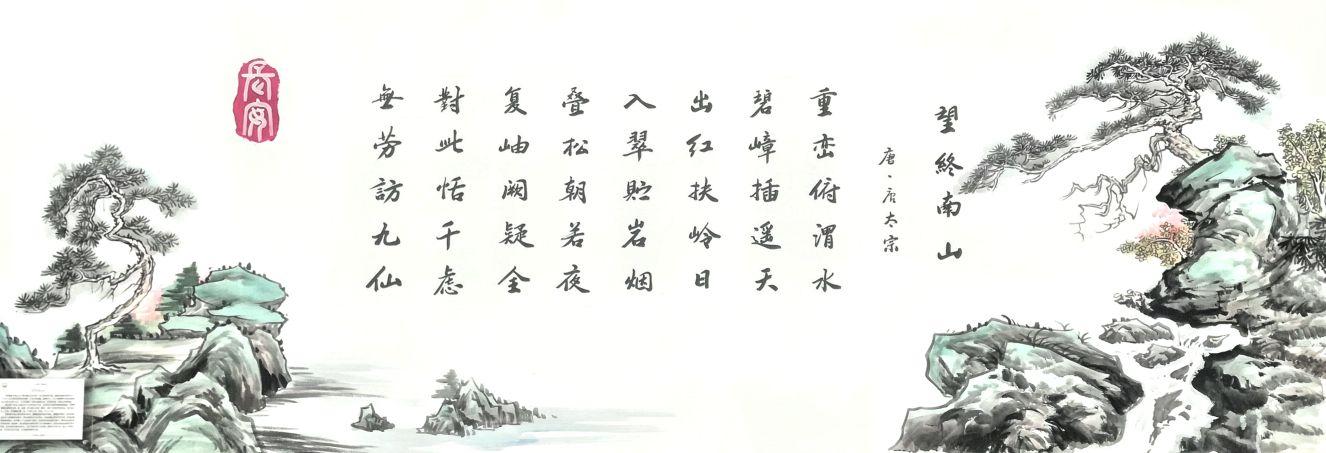 望終南山
唐·唐太宗
重峦俯渭水
碧嶂插遥天
出红扶岭日
入翠贮岩烟
叠松朝若夜
复岫阙疑全
對此恬千虑
無劳訪九仙
长安